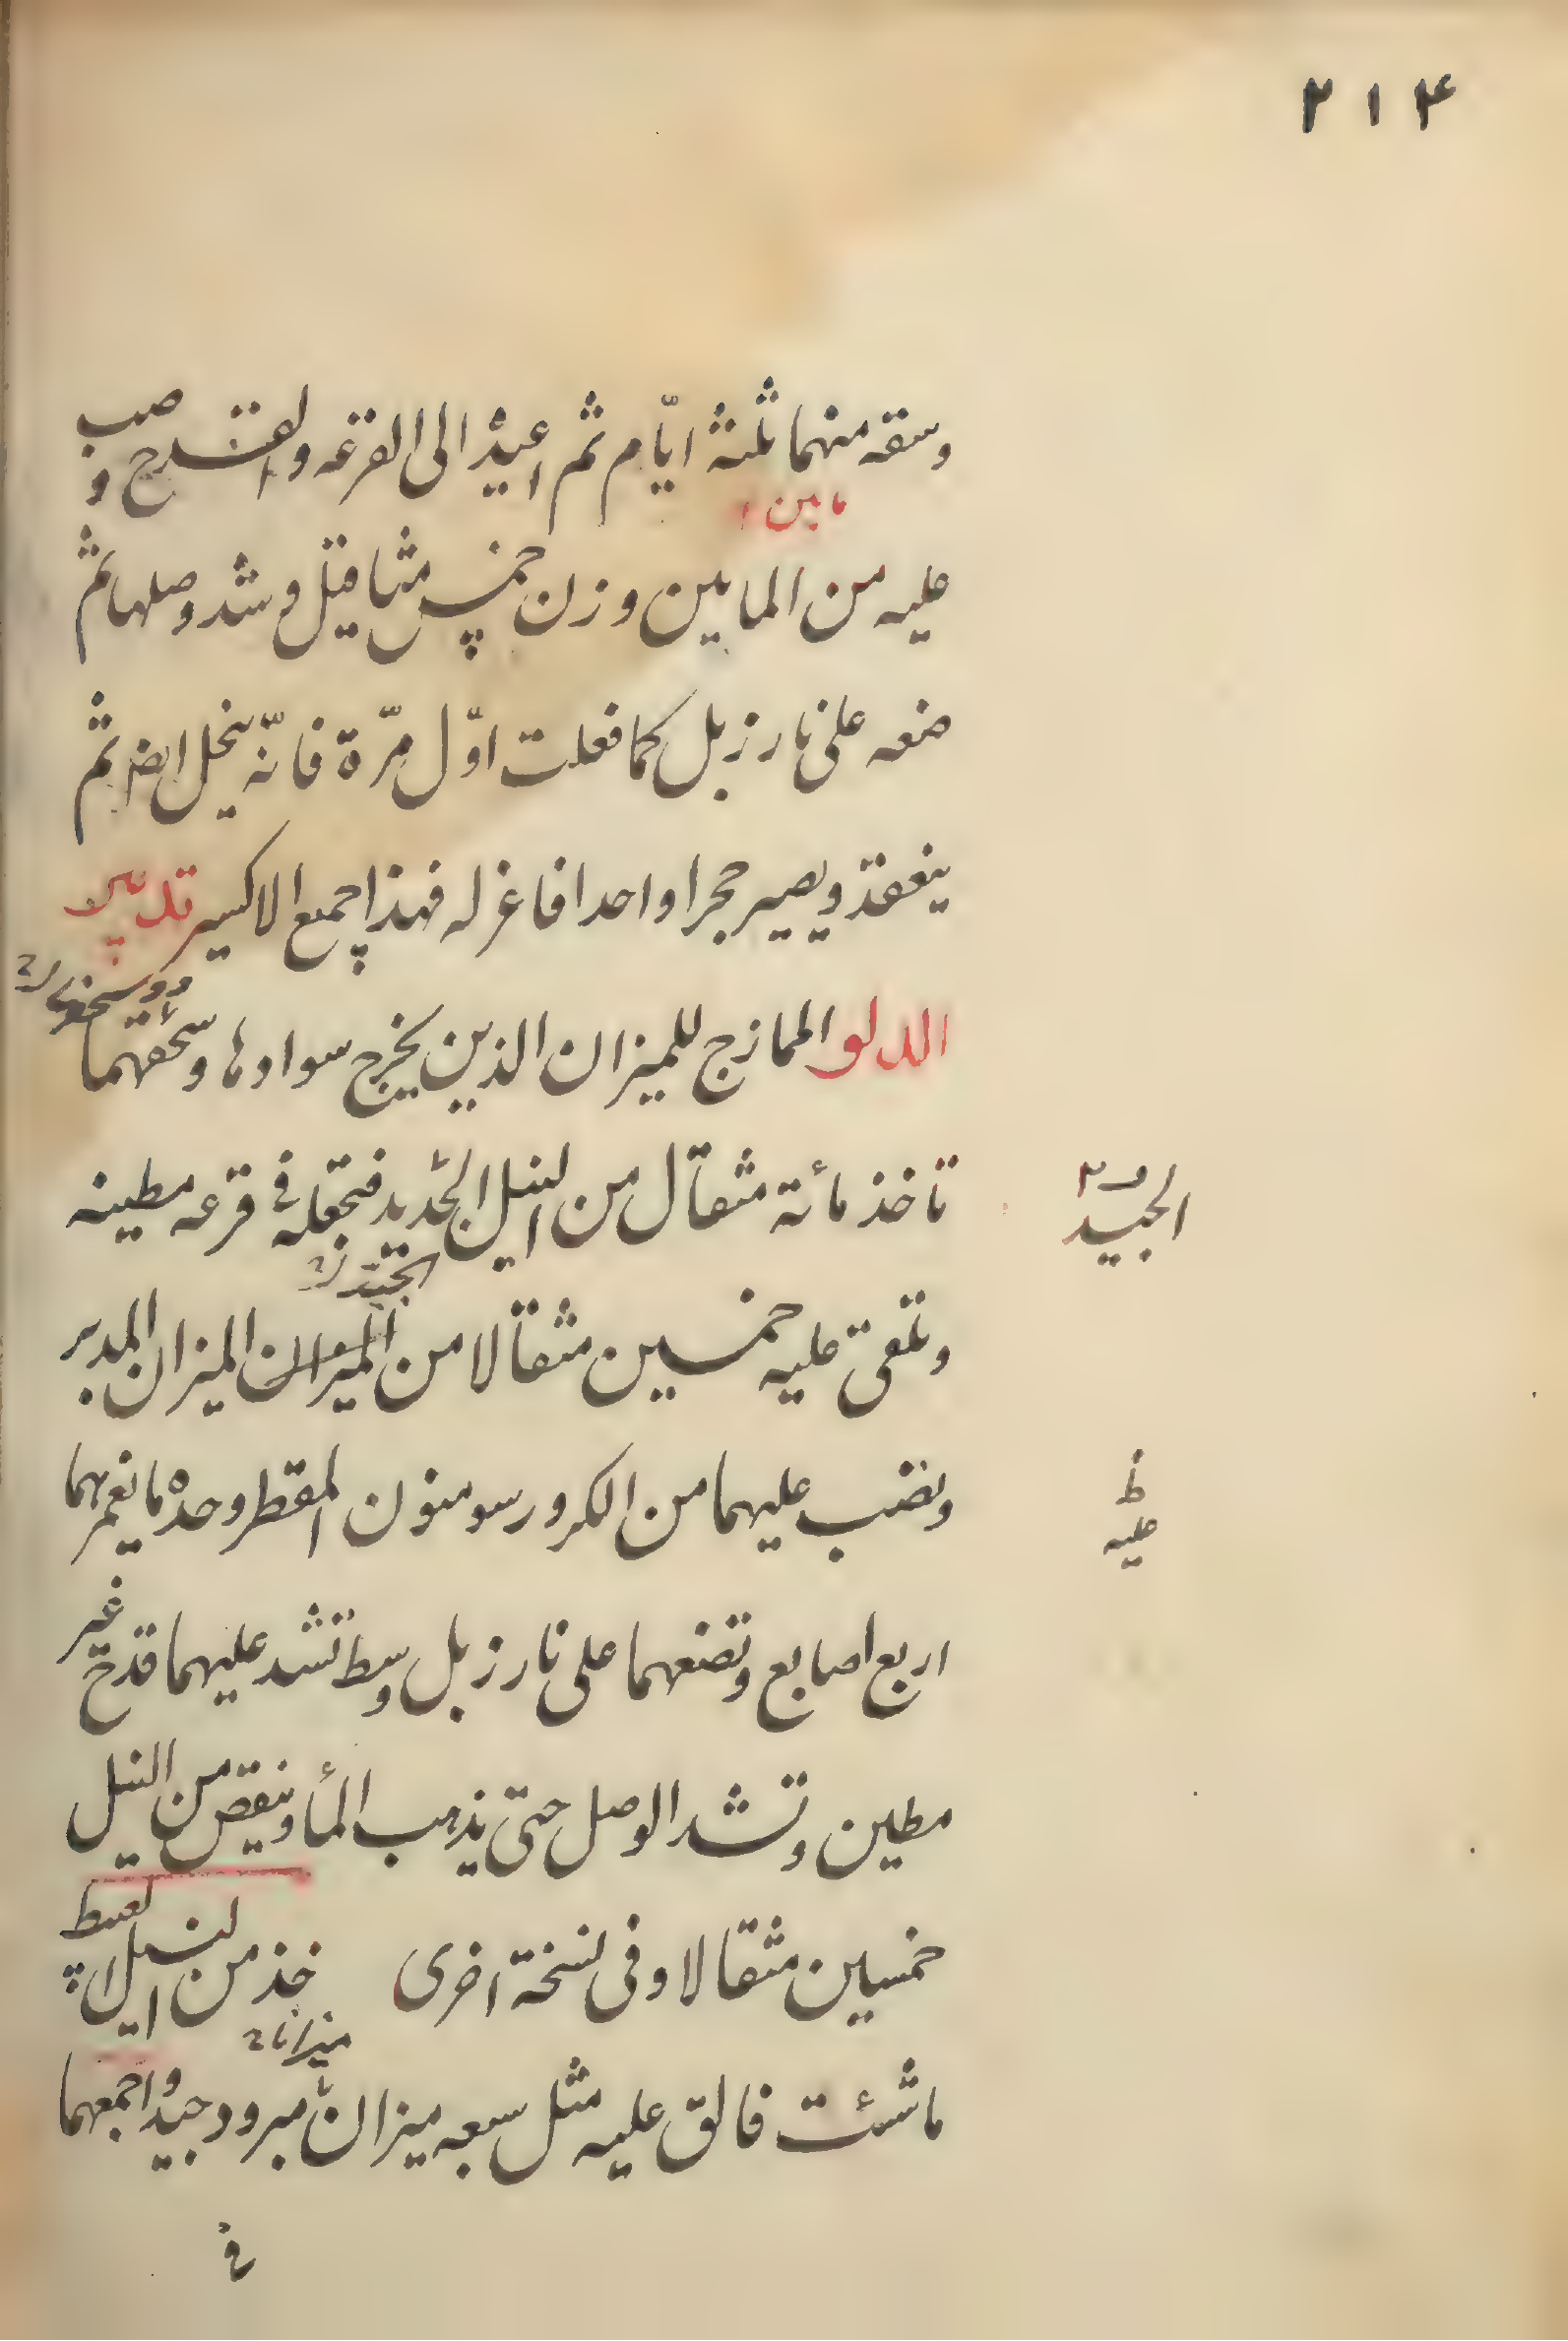 ٢١٤
وسقه منهما ثلثة ايّام ثم اعيدْ الى القرعه والقدح وصب
مابين
عليه من المابين وزن خمس مثاقيل وشد وصلها ثم
ضعه على نار زبل كما فعلت اوّل مرّة فانّه ينحل ايضر ثم
ينعقد ويصير حجرا واحدا فاعزله فهذا جميع الاكسير تدبير
الدلو الممازج للميزان الذين يخرج سوادها وسحقهما
تاخذ مائة مثقال من النيل الجديد فتجعله فى قرعه مطينه
الجيد
الجيد
وتلقى عليه خمسين مثقالا من الميزان الميزان المدبر
وتضب عليهما من الكرورسومنون المقطر وحدهْ ما يغمرهما
ظ
عليه
اربع اصابع وتضعهما على نار زبل وسط تشد عليهما قدح غير
مطين وتشد الوصل حتى يذهب المأ وينقص من النيل
خمسين مثقالا وفى نسخة اخرى خذ من النيل القبط
ميزانا
ما شئت فالق عليه مثل سبعه ميزان مبرود جيد واجمعهما
فى